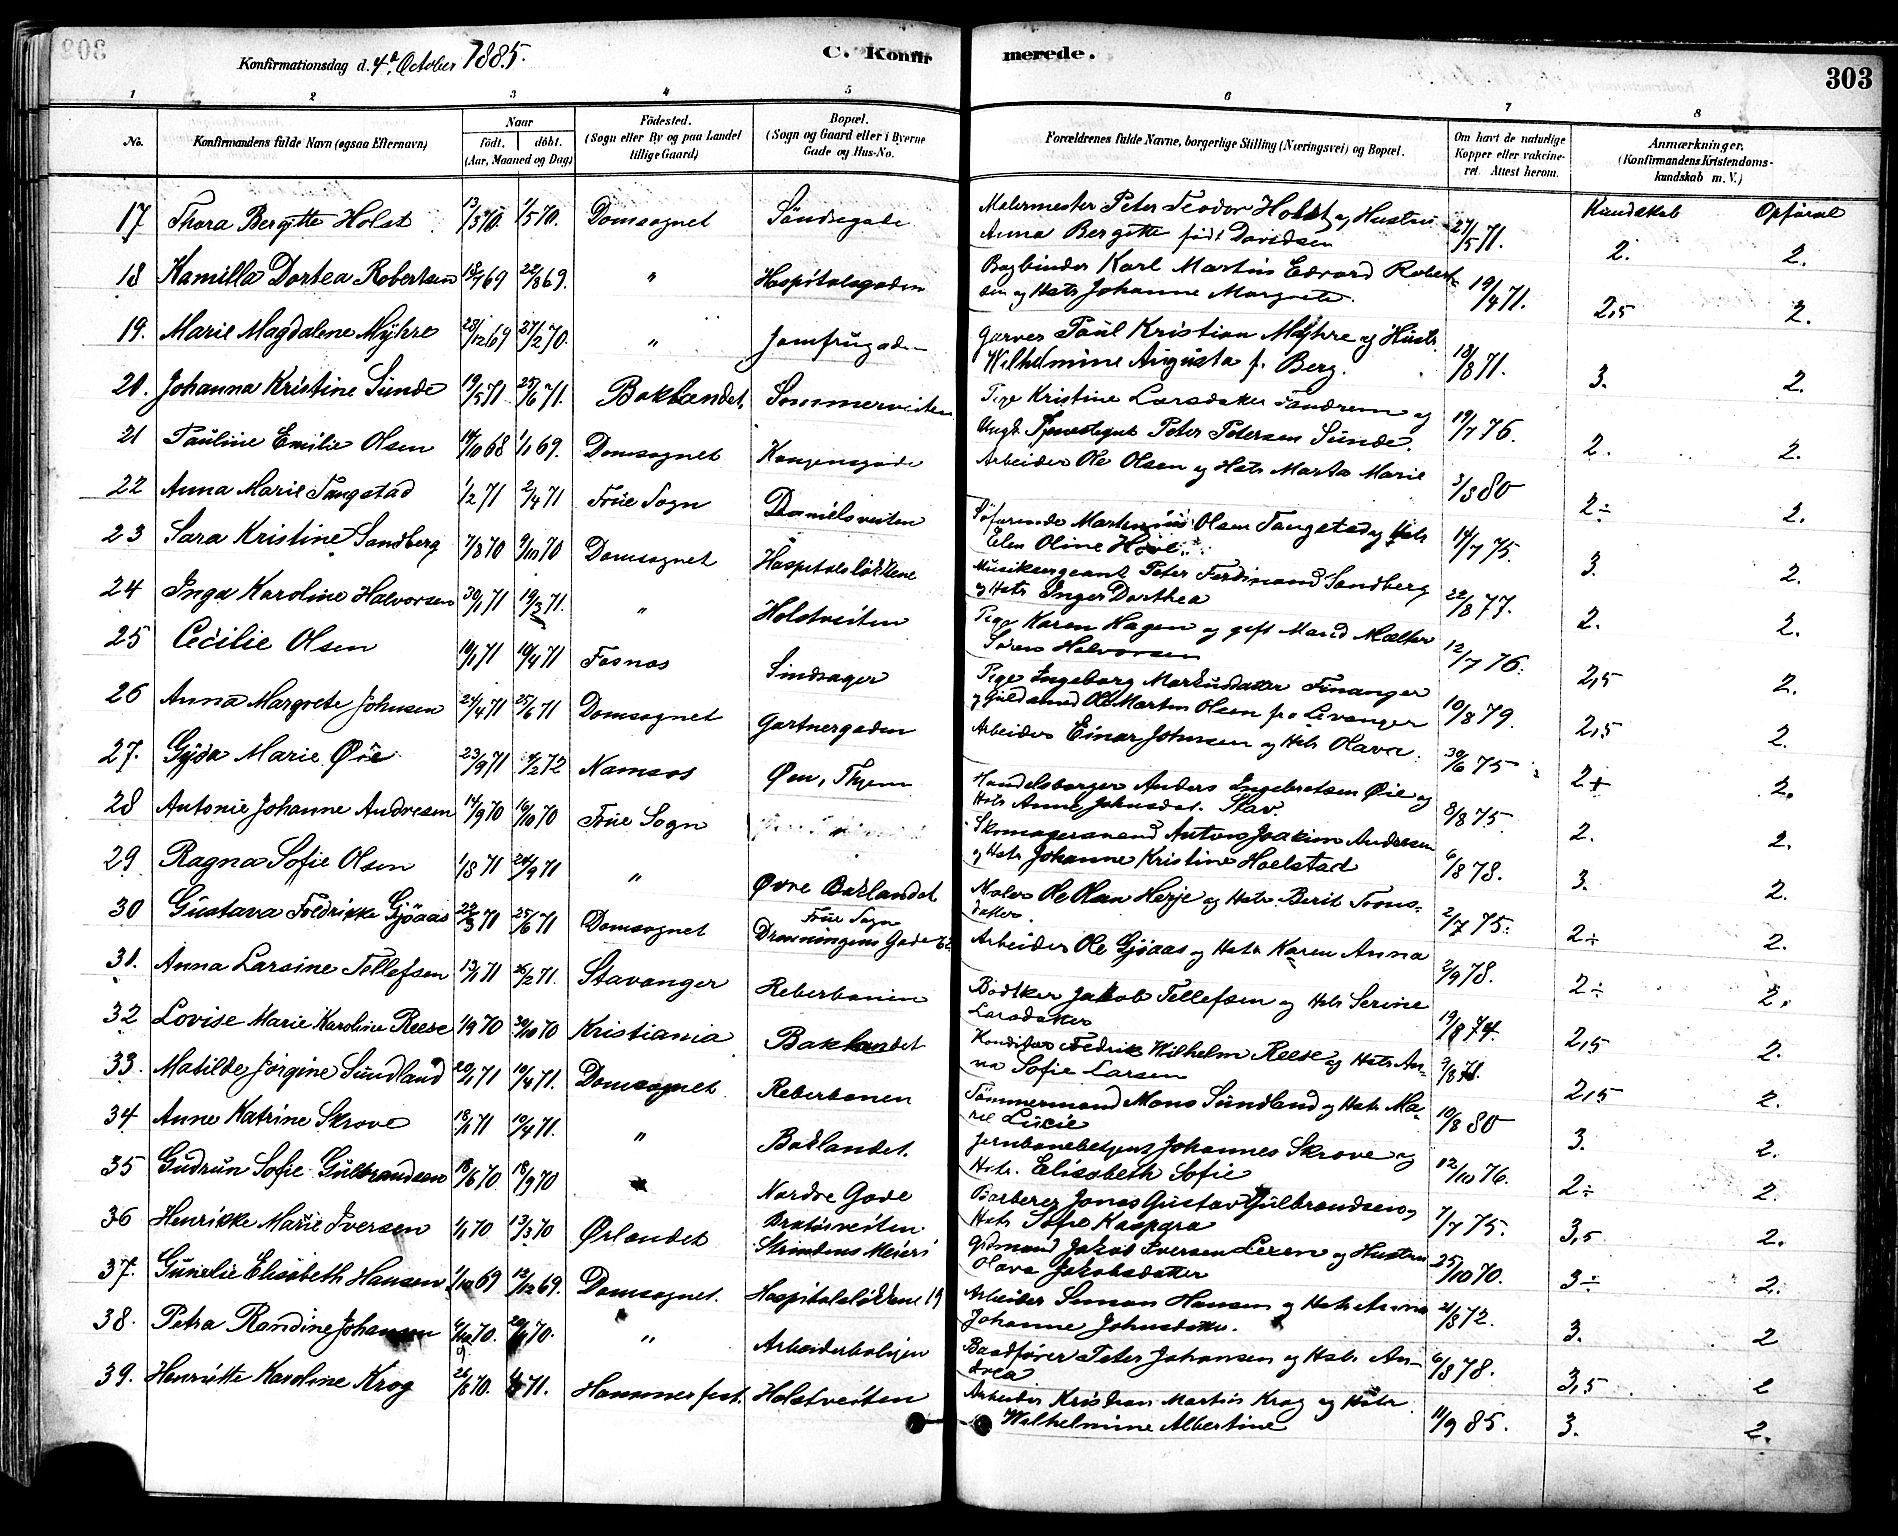 Konfirmationsdag d. 4de October 1885.
C. Konfirmerede.
303
1 2 3 4 5 6 7 8
No.
Konfirmandens fulde Navn (ogsaa Efternavn)
Naar
födt. döbt.
(Aar, Maaned og Dag)
Födested.
(Sogn eller By og paa Landet
tillige Gaard)
Bopæl.
(Sogn og Gaard eller i Byerne
Gade og Hus-No.
Forældrenes fulde Navne, borgerlige Stilling (Næringsvei) og Bopæl.
Om havt de naturlige
Kopper eller vakcine-
ret. Attest herom.
Anmærkninger.
(Konfirmandens Kristendoms-
kundskab m. V.)
Kundskab Opförsel
17 Thora Bergitte Holst 13/3 70. 1/5 70. Domsognet Söndregade Malermester Peter Teodor Holst og Hustru
Anna Bergitte födt Davidsen 27/5 71. 2. 2.
18 Kamilla Dortea Robertsen 18/7 69 22/8 69. " Hospitalsgaden Bogbinder Karl Martin Edvard Robert-
sen og Hstr Johanne Margrete. 19/4 71. 2,5 2.
19. Marie Magdalene Myhre 28/12 69 27/2 70. " Jomfrugaden Garver Paul Kristian Myhre og Hustr.
Wilhelmine Augusta f. Berg. 18/8 71. 3. 2.
20. Johanna Kristine Sunde 19/5 71 25/6 71. Baklandet, Sommerveiten Pige Kristine Larsdatter Tandrem og
Ungk. Tjenestegut Peter Petersen Sunde. 19/7 76. 2. 2.
21 Pauline Emilie Olsen 14/10 68 1/1 69. Domsognet Kongensgade Arbeider Ole Olsen og Hstr Marta Marie 3/3 80 2÷ 2.
22 Anna Marie Tangstad 1/2 71 2/4 71 Frue Sogn Danielsveiten Söfarende Martinius Olsen Tangstad og Hstr
Elen Oline 14/7 75. 3. 2.
23 Sara Kristine Sandberg 7/8 70 9/10 70 Domsognet Hospitalslökkene Musiksergeant Peter Ferdinand Sandberg
og Hstr Inger Dorthea 22/8 77. 2. 2.
24 Inga Karoline Halvorsen 30/1 71 19/3 71. " Holstveiten Pige Karen Hagen og gift Mand
Sören Halvorsen 12/7 76. 2,5 2.
25 Cecilie Olsen 19/1 71 10/4 71 Fosnæs Sindsager Pige Ingeborg Markusdatter Finanger
og Ole Martin Olsen fra Levanger 10/8 79. 2,5 2.
26 Anna Margrete Johnsen 24/4 71 25/6 71 Domsognet Gartnergaden Arbeider Einar Johnsen og Hstr Olava. 30/6 75 2+ 2.
27. Gyda Marie Øie 23/9 71 4/2 72 Namsos Øen, Handelsborger Anders Ingebretsen Øie og
Hstr Anne Johnsdat. Stav. 8/8 75. 2. 2.
28 Antonie Johanne Andresen 14/9 70 16/10 70 Frue Sogn Skomagersvend Anton Joakim Andresen
og Hstr Johanne Kristine Hoelstad 6/8 78. 3. 2.
29 Ragna Sofie Olsen 1/8 71 24/9 71 " Øvre Baklandet Maler Ole Olsen Herje og Hstr. Berit Trons-
datter. 2/7 75. 2÷ 2.
30 Gustava Fredrikke Gjöaas 22/3 70 25/6 71 Domsognet Frue Sogn
Dronningens Gade Arbeider Ole Gjöaas og Hstr Karen Anna 2/9 78. 2÷ 2.
31. Anna Larsine Tellefsen 13/1 71 26/2 71. Stavanger Reberbanen Bödtker Jakob Tellefsen og Hstr Serine
Larsdatter 19/8 74. 2,5 2.
32 Lovise Marie Karoline Reese 1/9 70 30/10 70 Kristiania Baklandet Konditor Fredrik Wilhelm Reese og Hstr An-
na Sofie Larsen 2/8 71. 2,5 2.
33. Matilde Jörgine Sundland 20/1 71 10/4 71. Domsognet Reberbanen Tömmermand Mons Sundland og Hstr Ma-
rie Lucie 10/8 80 3. 2.
34 Anne Katrine Skrove 18/1 71 10/4 71. " Baklandet. Jernbanebetjent Johannes Skrove og
Hstr. Elisabeth Sofie 12/10 76. 2÷ 2.
35 Gudrun Sofie Gulbrandsen 18/6 70 18/9 70 " Nordre Gade Barberer Jonas Gustav Gulbrandsen og
Hstr Sofie Kaspara 7/7 75. 3,5 2.
36 Henrikke Marie Iversen 1/1 70 13/3 70 Ørlandet Bratörveiten
Strindens Meieri Jakob Iversen Lexen og Hustru
Olava Jakobsdatter 25/10 70. 3÷ 2.
37. Gunelie Elisabeth Hansen 1/10 69 12/12 69. Domsognet. Hospitalslökkene 19 Arbeider Simon Hansen og Hstr Anna
Johanne Johnsdatter. 21/8 72. 3. 2
38. Petra Randine Johansen 70. 70. " Arbeiderboligen Baadförer Peter Johansen og Hstr An-
drea 6/8 78. 3,5 2
39. Henriette Karoline Krog 26/6 70. 71. Hammerfest. Holstveiten Arbeider Kristian Martin Krog og Hstr
Wilhelmine Albertine 11/9 85. 3. 2.